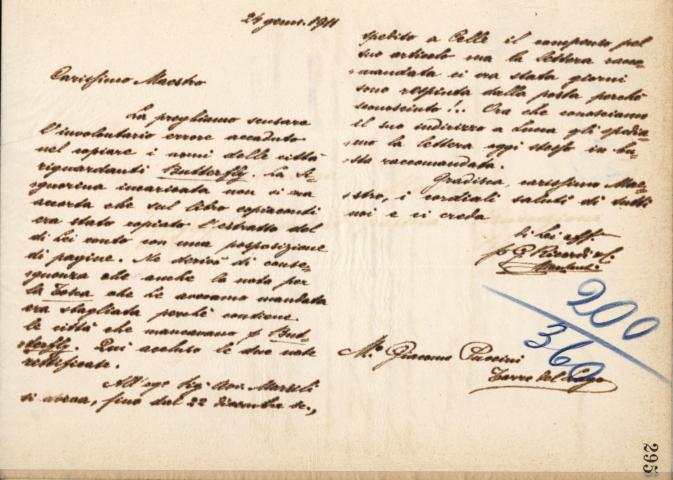 24 genn. 1911
Carissimo Maestro
La preghiamo scusare
l'involontario errore accaduto
nel copiare i nomi delle città
riguardanti Butterfly. La Si-
gnorina incaricata non si era
accorta che sul libro copiaconti
era stato copiato l'estratto del
di Lei conto con una posposizione
di pagine. Ne derivò di conse-
guenza che anche la nota per
la Tosca che Le avevamo mandata
era sbagliata perché contiene
le città che mancavano p But-
terfly. Qui accluse le due note
rettificate.
All'egr. Sig. Avv. Marsili
si aveva, fino dal 22 dicembre sc.,
spedito a Celle il compenso pel
suo articolo ma la lettera racco-
mandata ci era stata giorni
sono respinta dalla posta perché
sconosciuto!.. Ora che conosciamo
il suo indirizzo a Lucca gli spedia-
mo la lettera oggi stesso in bu-
sta raccomandata.
Gradisca, carissimo Mae-
stro, i cordiali saluti di tutti
noi e ci creda
di Lei aff.
p G. Ricordi & C.
M.o Giacomo Puccini
Torre del Lago
200
360
295